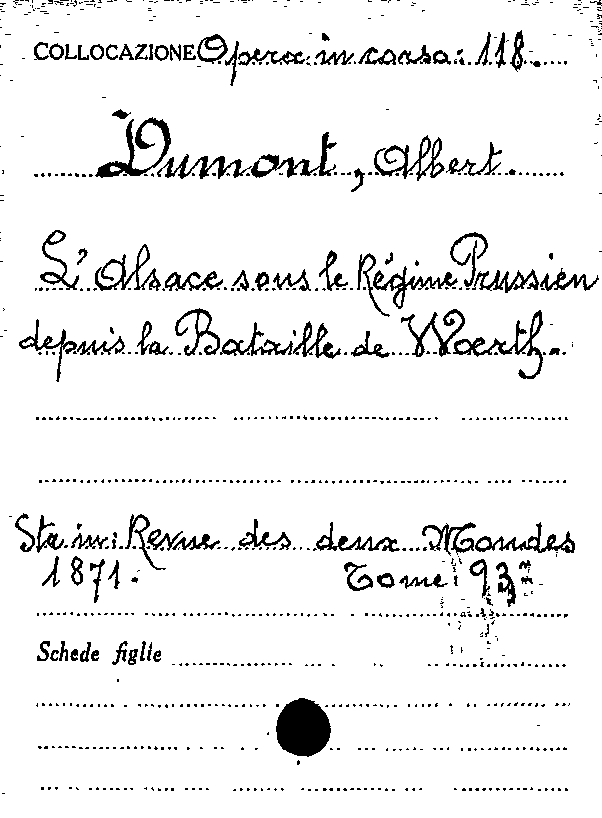 COLLOCAZIONE Opera in corso: 118.
Dumont, Albert.
L'Alsace sous le Régime Prussien
depuis la Bataille de Woerth.
Sta in: Revue des deux Mondes
1871. Tome 93
Schede figlie